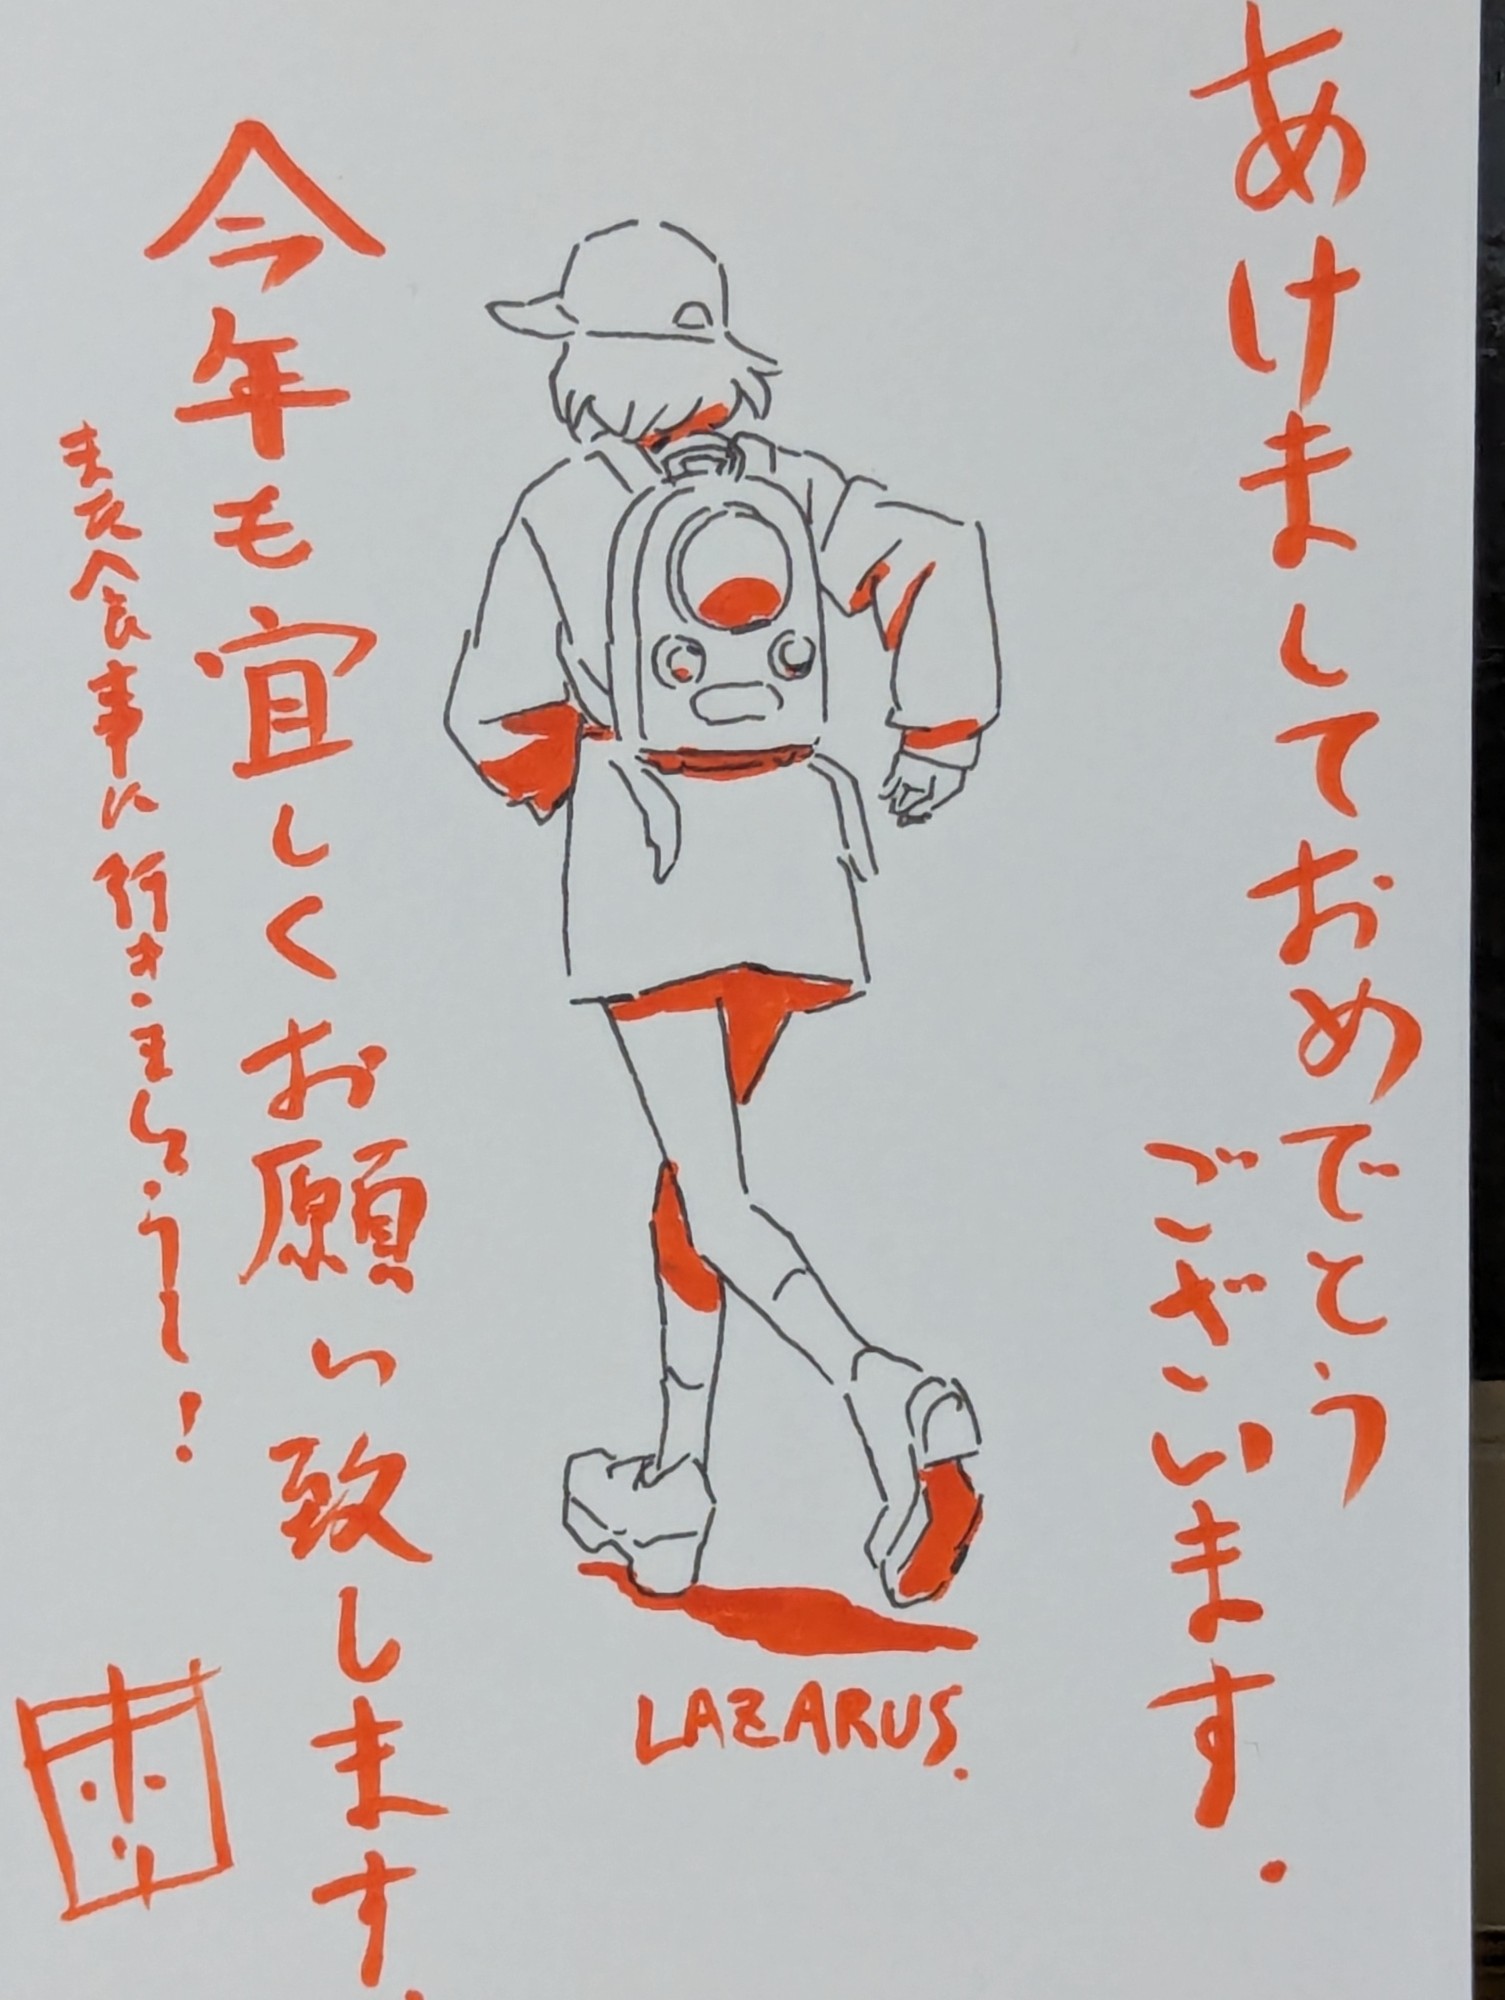 あけましておめでとう
ございます.
今年も宜しくお願い致します.
また食事に行きましょうー!
LAZARUS.